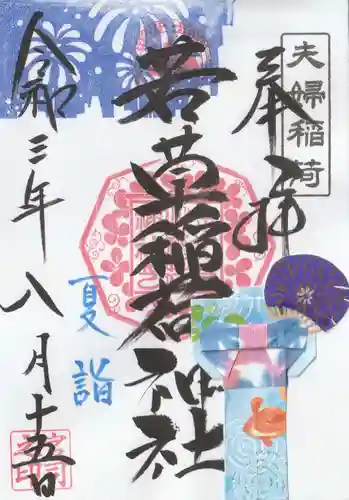 夫婦稲荷
奉拝
若草稲荷神社
夏詣
令和三年八月十五日